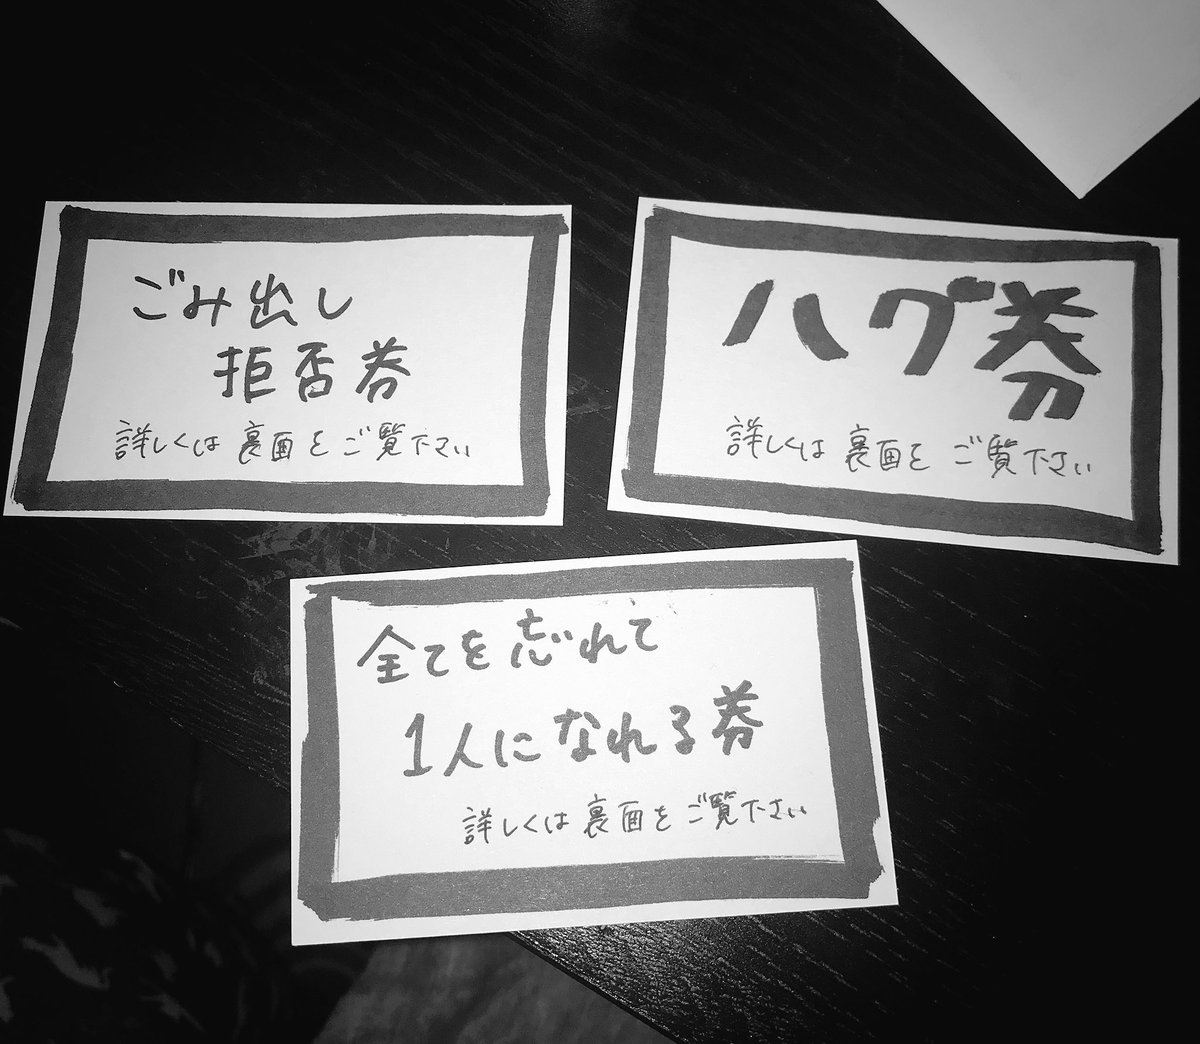 ごみ出し
拒否券
詳しくは裏面をご覧下さい
ハグ券
詳しくは裏面をご覧下さい
全てを忘れて
1人になれる券
詳しくは裏面をご覧下さい